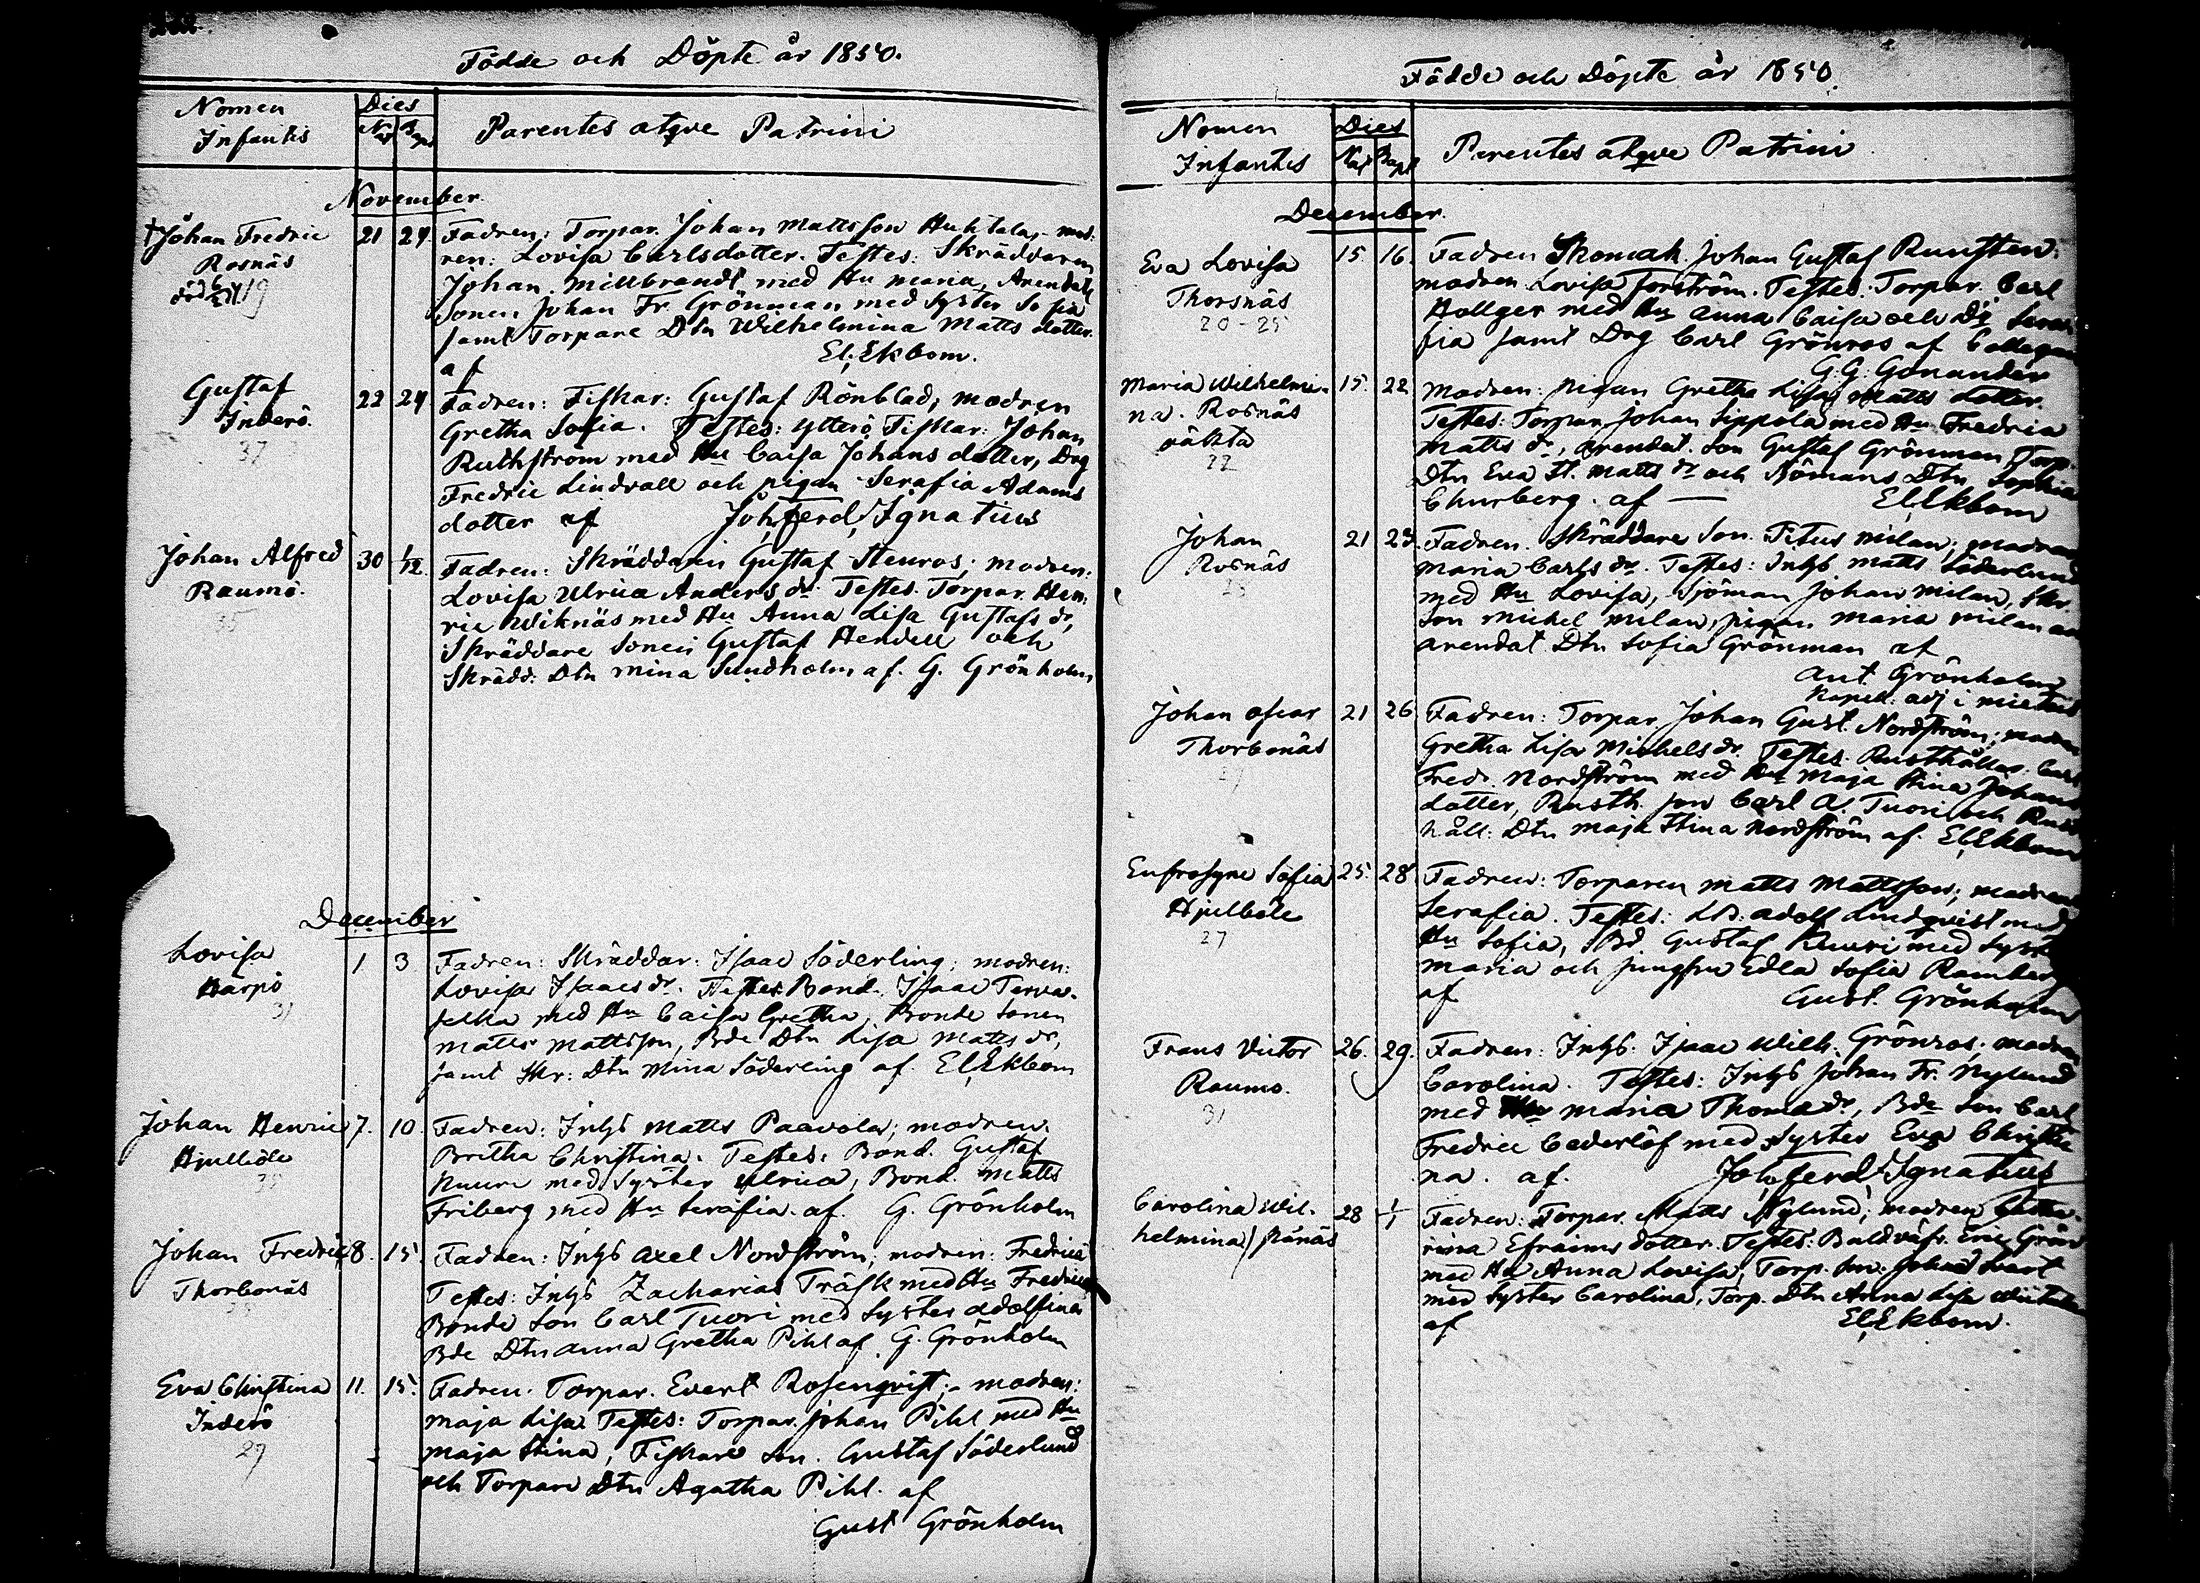 Födde och Döpte år 1850.
Nomen Infantis
Dies
Nat Bapt
Parentes atqve Patrini
November.
†Johan Fredric
Rosnäs
död
19
21 24
Fadren: Torpar. Johan Mattsson Huhtala,- mod-
ren: Lovisa Carlsdotter. Testes: Skräddaren
Johan. Millbrandt med Hu Maria, Arendat
Sonen Johan Fr. Grönman med Syster Sofia
samt Torpare Dtn Wilhelmina Matts dotter.
af El; Ekbom.
Gustaf
Inderö.
37
22 24
Fadren: Fiskar: Gustaf Rönblad, modren
Gretha Sofia. Testes: Ytterö Fiskar: Johan
Ruthström med Hu Caisa Johans dotter, Drg
Fredric Lindvall och pigan Serafia Adams
dotter af Joh; Ferd; Ignatius
Johan Alfred
Raumo.
35
30 1/12.
Fadren: Skräddaren Gustaf Stenros; modren:
Lovisa Ulrica Anders dr. Testes. Torpar. Hen-
ric Wiknäs med Hu Anna Lisa Gustafs dr,
Skräddare Sonen Gustaf Hendell och
Skrädd: Dtn Mina Sundholm af. G. Grönholm
December
Lovisa
Harpö
31
1 3
Fadren: Skräddar: Isaac Söderling; modren:
Lovisa Isaacs dr. Testes Bond. Isaac Terva-
selkä med Hu Caisa Gretha, Bonde Sonen
Matts Mattsson, Bde Dtn Lisa Matts dr,
samt Skr: Dtn Mina Söderling af. El; Ekbom
Johan Henric
Hjulböle
7. 10.
Fadren: Inhys Matts Paavola; modren:
Britha Christina. Testes. Bond. Gustaf
Nuuri med Syster Ulrica, Bond. Matts
Friberg med Hu Serafia. af. G. Grönholm
Johan Fredric
Thorbonäs
8. 15.
Fadren: Inhys Axel Nordström; modren: Fredrica
Testes: Inhys Zacharias Träsk med Hu Fredrica
Bonde Son Carl Tuori med Syster Adolfina
Bde Dtn Anna Gretha Pihl af. G. Grönholm
Eva Christina
Inderö
29
11. 15.
Fadren. Torpar. Evert Rosenqvist; - modren:
Maja Lisa. Testes: Torpar. Johan Pihl med Hu
Maja Stina, Fiskare Son. Gustaf Söderlund
och Torpare Dtn Agatha Pihl. af
Gust Grönholm
Födde och Döpte år 1850.
Nomen Infantis
Dies
Nat Bapt
Parentes atqve Patrini
December.
Eva Lovisa
Thorsnäs
20-25
15 16.
Fadren Skomak. Johan Gustaf Runsten:
modren Lovisa Forström. Testes: Torpar. Carl
Hollger med Hu Anna Caisa och Dr Sera-
fia samt Drg Carl Grönros af Collegan
G: G: Gonander
Maria Wilhelmi-
na. Rosnäs
oäkta
22
15. 22
Modren: pigan Gretha Lisa Matts dotter.
Testes: Torpar Johan Sippola med Hu Fredrica
Matts dr, arendat. Son Gustaf Grönman, Torp.
Dtn Eva St. Matts dr och Nömans Dtn Sophia
Churberg. af — El; Ekbom
Johan
Rosnäs
21 23.
Fadren. Skräddare Son Titus Milan; modren
Maria Carls dr. Testes: Inhys Matts Söderlund
med Hu Lovisa, Sjöman Johan Milan, Skr.
Son Michel Milan, pigan Maria Milan
arendat Dtn Sofia Grönman af
Ant. Grönholm
Kapell: adj i
Johan Oscar
Thorbonäs
27
21 26
Fadren: Torpar Johan Gust. Nordström; modren
Gretha Lisa Michels dr. Testes. Rusthållar. Carl
Fredr. Nordström med Hu Maja Stina Johans
dotter, Rusth. Son Carl A. Tuori och Rust
håll: Dtn Maja Stina Nordström af. El; Ekbom
Eufrosyne Sofia
Hjulböle
27
25. 28.
Fadren: Torparen Matts Mattsson; modren
Serafia. Testes: LB. Adolf Lindqvist med
Hu Sofia, Bd Gustaf Knuuri med Syster
Maria och jungfru Edla Sofia Ramberg
af Gust. Grönholm
Frans Victor
Raumo.
31
26. 29.
Fadren: Inhys. Isaac Wilh. Grönros; modren
Carolina. Testes: Inhys Johan Fr. Nylund
med Hu Maria Thoma dr, Bde Son Carl
Fredric Cederlöf med Syster Eva Christi
na. af. Joh; Ferd; Ignatius
Carolina Wil-
helmina/Pänäs
28 1/1
Fadren: Torpar. Matts Nylund; modren Catha-
rina Efraims dotter. Testes: Buldväfv. Eric Grön
med Hu Anna Lovisa, Torp. Son. Johan Svart
med Syster Carolina, Torp. Dtn Anna Lisa
af El; Ekbom.